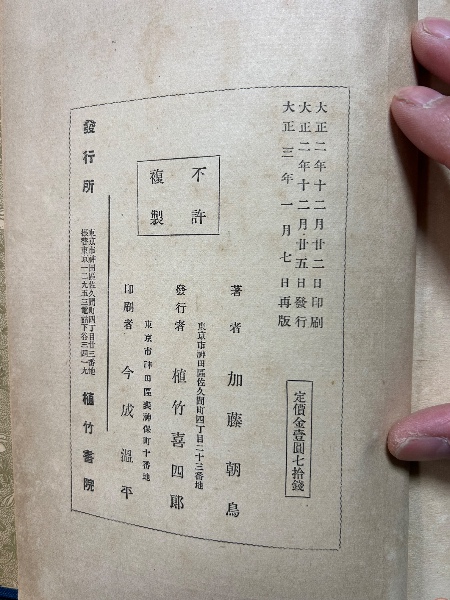 大正二年十二月廿二日印刷
大正二年十二月廿五日發行
大正三年一月七日再版
定價金壹圓七拾錢
不許
複製
著者 加藤朝鳥
東京市神田區佐久間町四丁目二十三番地
發行者 植竹喜四郎
東京市神田區裏神保町十番地
印刷者 今成溫平
發行所
東京市神田區佐久間町四丁目廿三番地
植竹書院